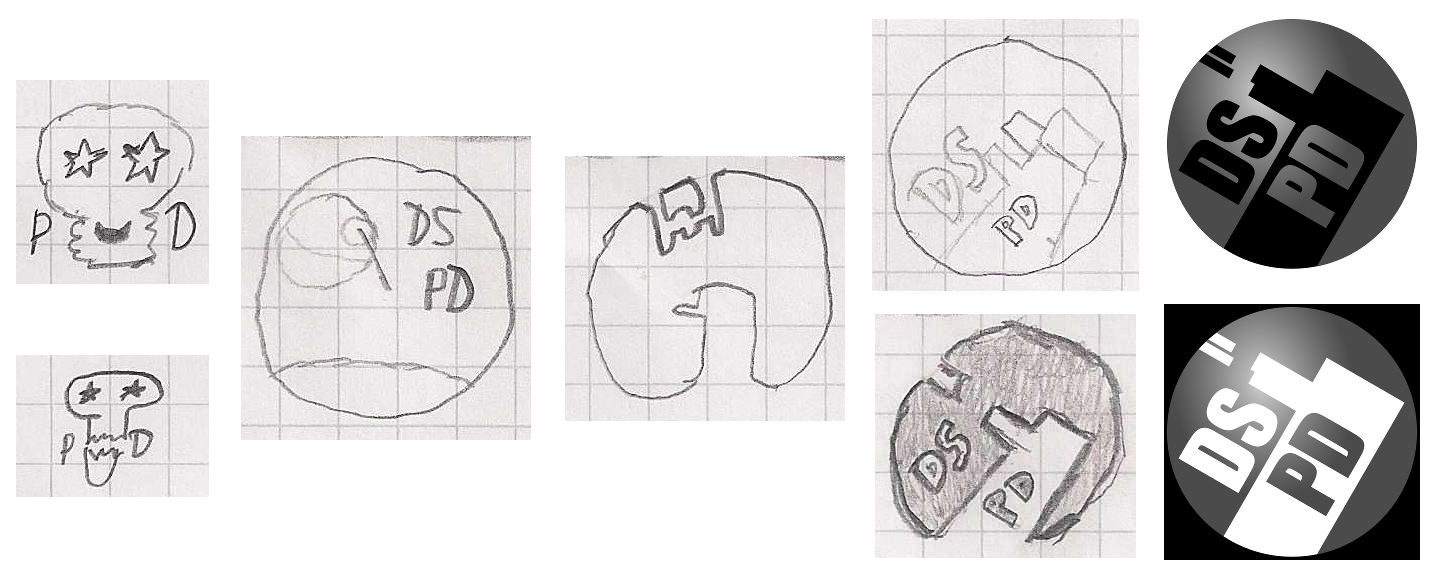 P D
P D
DS
PD
DS
PD
DS
PD
DS
PD
DS
PD